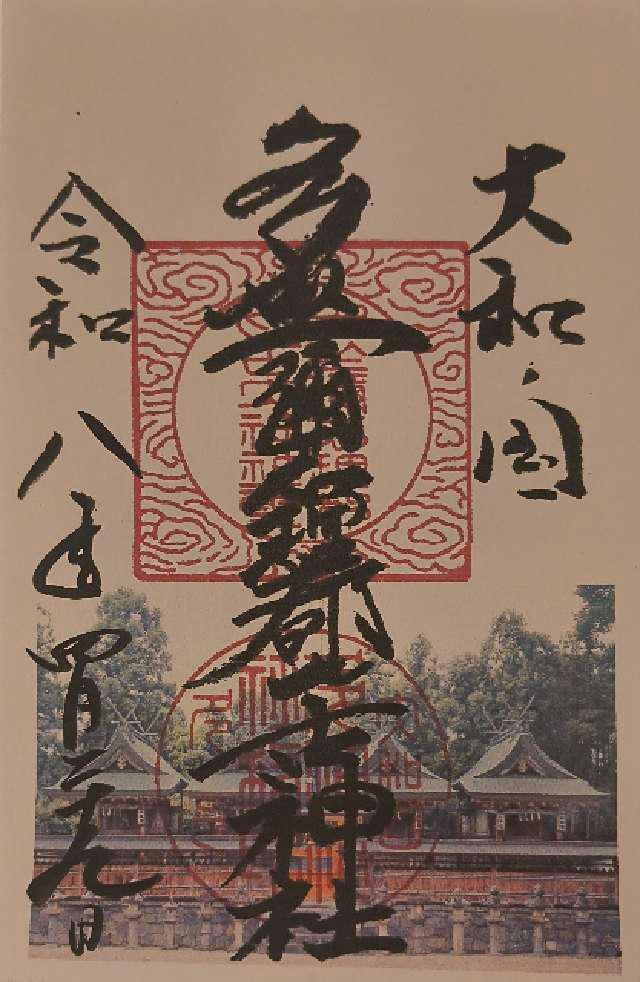 大和ノ国
多坐彌志理都比古神社
令和八年四月二十九日